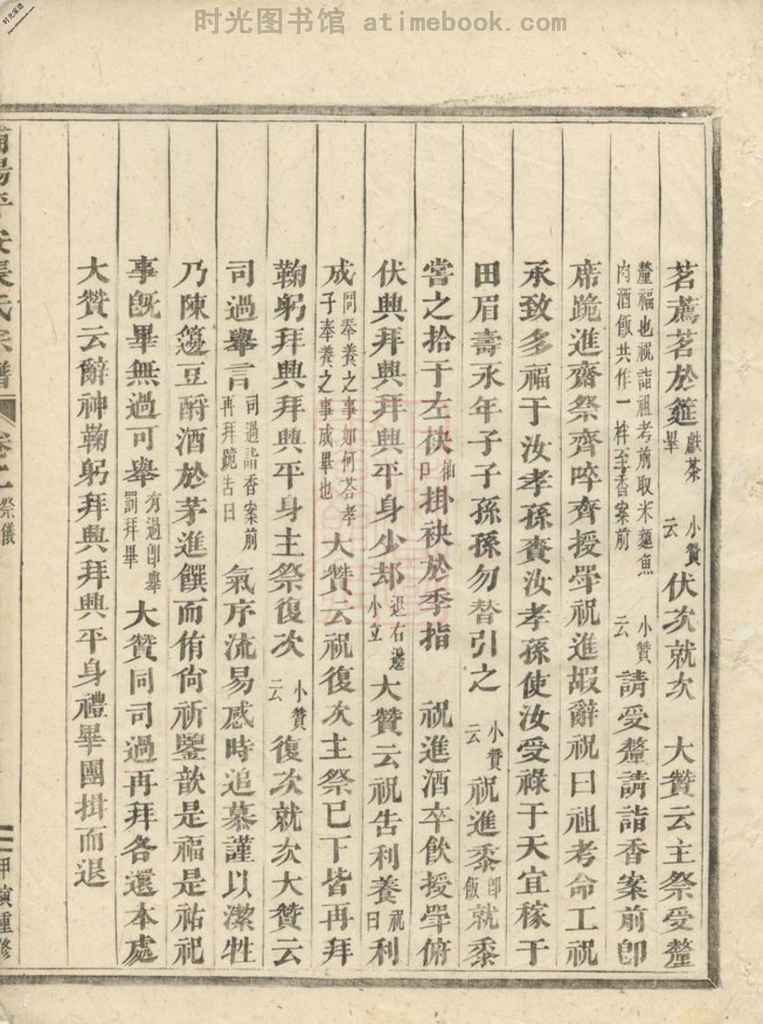 时光图书馆 atimebook.com
茗薦茗於筵獻茶畢小贊云伏次就次 大贊云主祭受釐
釐福也祝詣祖考前取米麵魚肉酒飯共作一柈至香案前小贊云請受釐請詣香案前卽
席跪進齋祭齊啐齊授斝祝進嘏辭祝曰祖考命工祝
承致多福于汝孝孫賚汝孝孫使汝受祿于天宜稼于
田眉壽永年子子孫孫勿替引之小贊云祝進黍卽飯就黍
嘗之拾于左袂袖口掛袂於季指 祝進酒卒飲授斝俯
伏興拜興拜興平身少却退右邊小立大贊云祝告利養祝曰利
成問奉養之事如何答孝子奉養之事成畢也大贊云祝復次主祭已下皆再拜
鞠躬拜興拜興平身主祭復次小贊云復次就次大贊云
司過舉言司過詣香案前再拜跪告曰氣序流易感時追慕謹以潔牲
乃陳籩豆酹酒於茅進饌而侑尙祈鑒歆是福是祐祀
事旣畢無過可舉有過卽舉罰拜畢大贊同司過再拜各還本處
大贊云辭神鞠躬拜興拜興平身禮畢團揖而退
張氏宗譜 祭儀